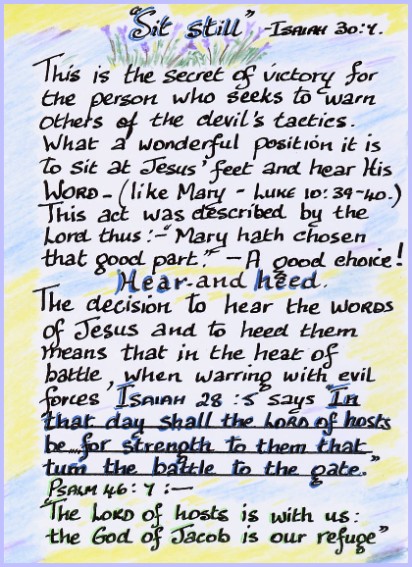 "Sit still" - ISAIAH 30:7.
This is the secret of victory for
the person who seeks to warn
others of the devil's tactics.
What a wonderful position it is
to sit at Jesus' feet and hear His
WORD - (like Mary - LUKE 10:39-40.)
This act was described by the
Lord thus:- "Mary hath chosen
that good part." - A good choice!
Hear and heed.
The decision to hear the WORDS
of Jesus and to heed them
means that in the heat of
battle, when warring with evil
forces ISAIAH 28:5 says "In
that day shall the LORD of hosts
be...for strength to them that
turn the battle to the gate."
PSALM 46:7:-
"The LORD of hosts is with us:
the God of Jacob is our refuge"